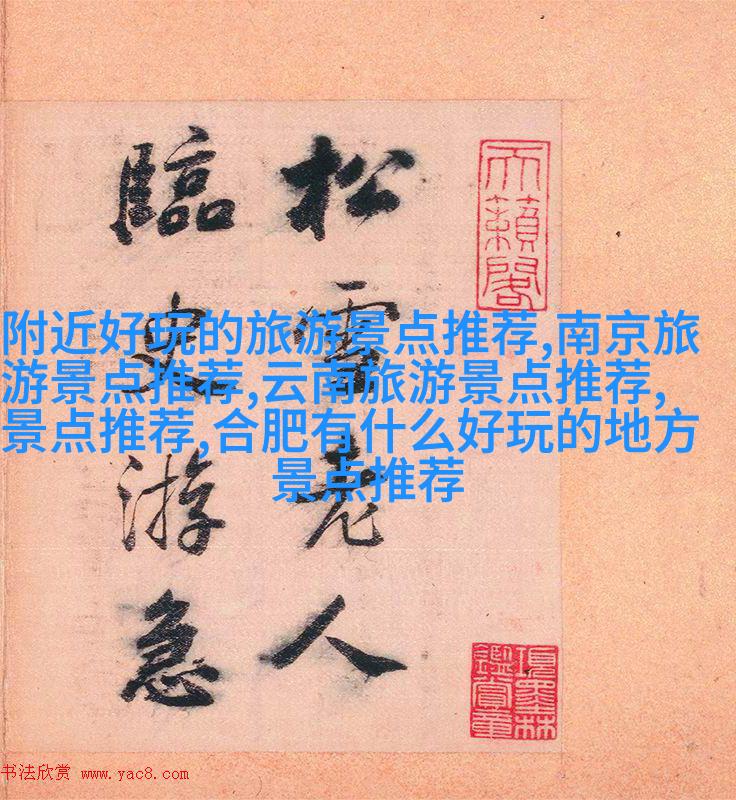 天籟閣
松雪老人
臨史游急
附近好玩的旅游景点推荐,南京旅
游景点推荐,云南旅游景点推荐,
景点推荐,合肥有什么好玩的地方
景点推荐
項墨林
鑑賞章
书法欣赏 www.yac8.com